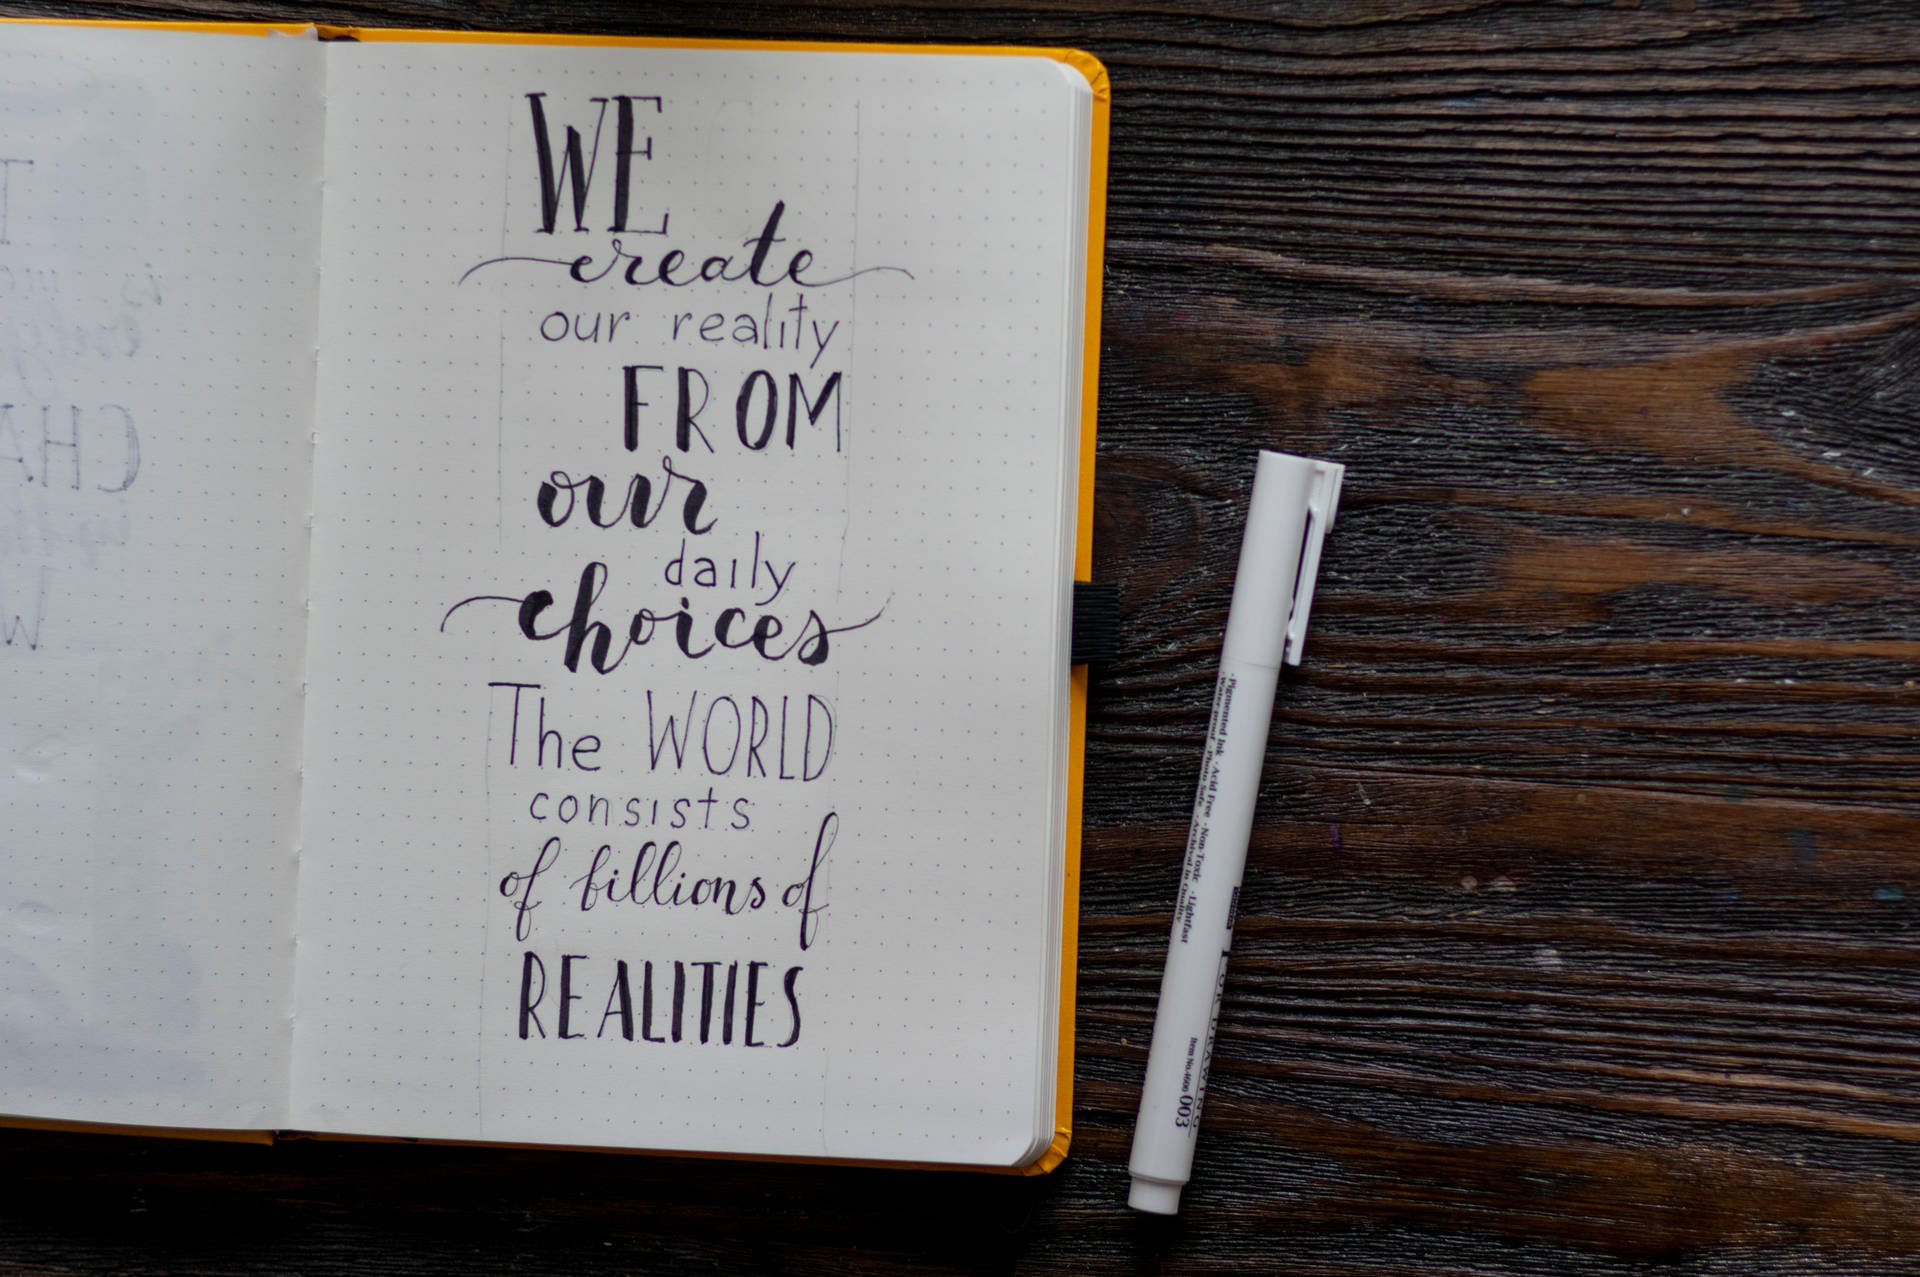 WE
create
our reality
FROM
our
daily
choices
The WORLD
consists
of billions of
REALITIES
· Pigmented Ink · Acid Free · Non-Toxic · Lightfast
· Water proof · Photo Safe · Archival in Quality
FOR DRAWING
Item No. 4600 003